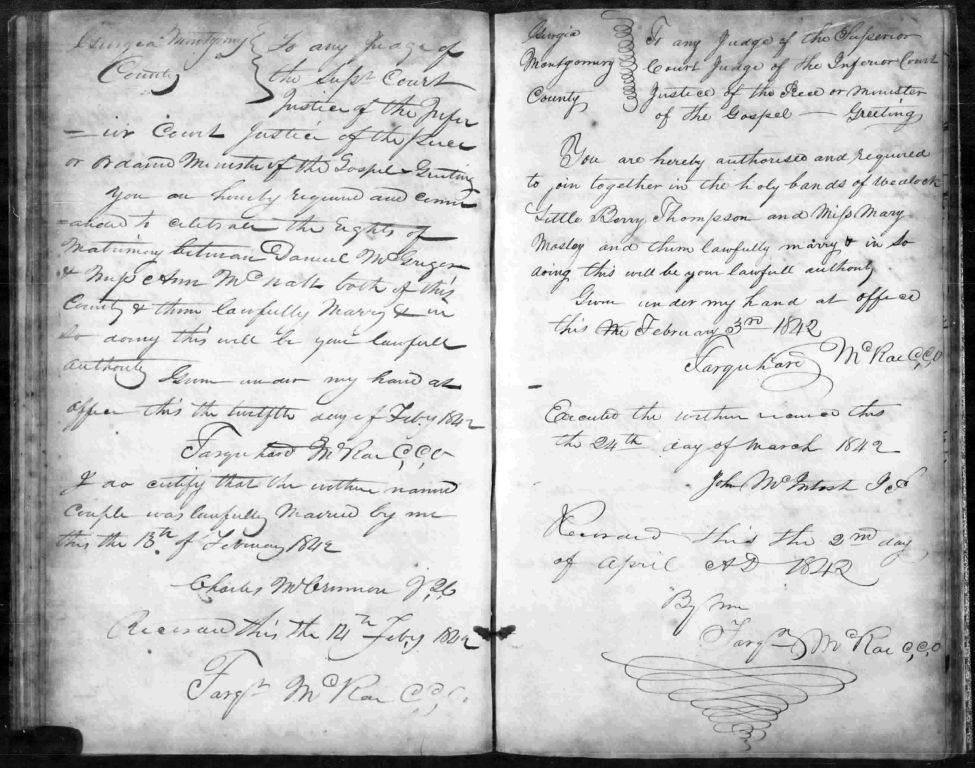 Georgia Montgomery } To any Judge of
County } the Supr Court
Justice of the Infer
= ior Court Justice of the Peace
or ordained Minister of the Gospel - Greeting
You are hereby required and comm
= anded to celebrate the Rights of
Matrimony between Daniel McGreger
& Miss Ann McNatt both of this
County & them lawfully Marry & in
so doing this will be your lawfull
authority Given under my hand at
office this the twelfth day of Feby 1842
Farquhard McRae C,C,O
I do certify that the within named
Couple was lawfully Married by me
this the 13th of February 1842
Charles McCrimmon
Recorded this the 14th Feby 1842
Farqr McRae C,C,O
Georgia To any Judge of the Superior
Montgomery Court Judge of the Inferior Court
County Justice of the Peace or minister
of the Gospel — Greeting
You are hereby authorised and required
to join together in the holy bands of wedlock
Little Berry Thompson and Miss Mary
Mosley and them lawfully marry & in so
doing this will be your lawfull authority
Given under my hand at office
this the February 3rd 1842
Farquhard McRae C,C,O
Executed the within named this
the 24th day of march 1842
John McIntosh J P
Recorded this the 2nd day
of April AD 1842
By me
Farqr McRae C,C,O